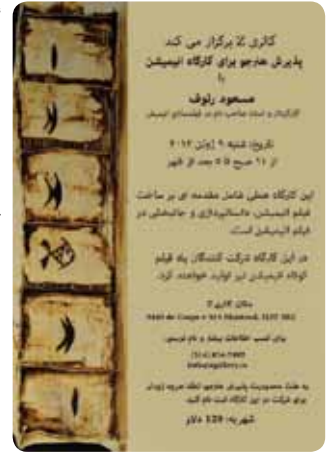 گالری Z برگزار می کند
پذیرش هنرجو برای کارگاه انیمیشن
با
مسعود رئوف
کارگردان و استاد صاحب نام در فیلمسازی انیمیشن
تاریخ: شنبه ۹ ژوئن ۲۰۱۲
از ۱۱ صبح تا ۵ بعد از ظهر
این کارگاه عملی شامل مقدمه ای بر ساخت
فیلم انیمیشن، داستانپردازی و جانبخشی در
فیلم انیمیشن است.
در این کارگاه شرکت کنندگان یک فیلم
کوتاه انیمیشن نیز تولید خواهند کرد.
مکان: گالری Z
Montreal,
برای کسب اطلاعات بیشتر و نام نویسی:
به علت محدودیت پذیرش هنرجو لطفا هرچه زودتر
برای شرکت در این کارگاه ثبت نام کنید.
شهریه: 120 دلار